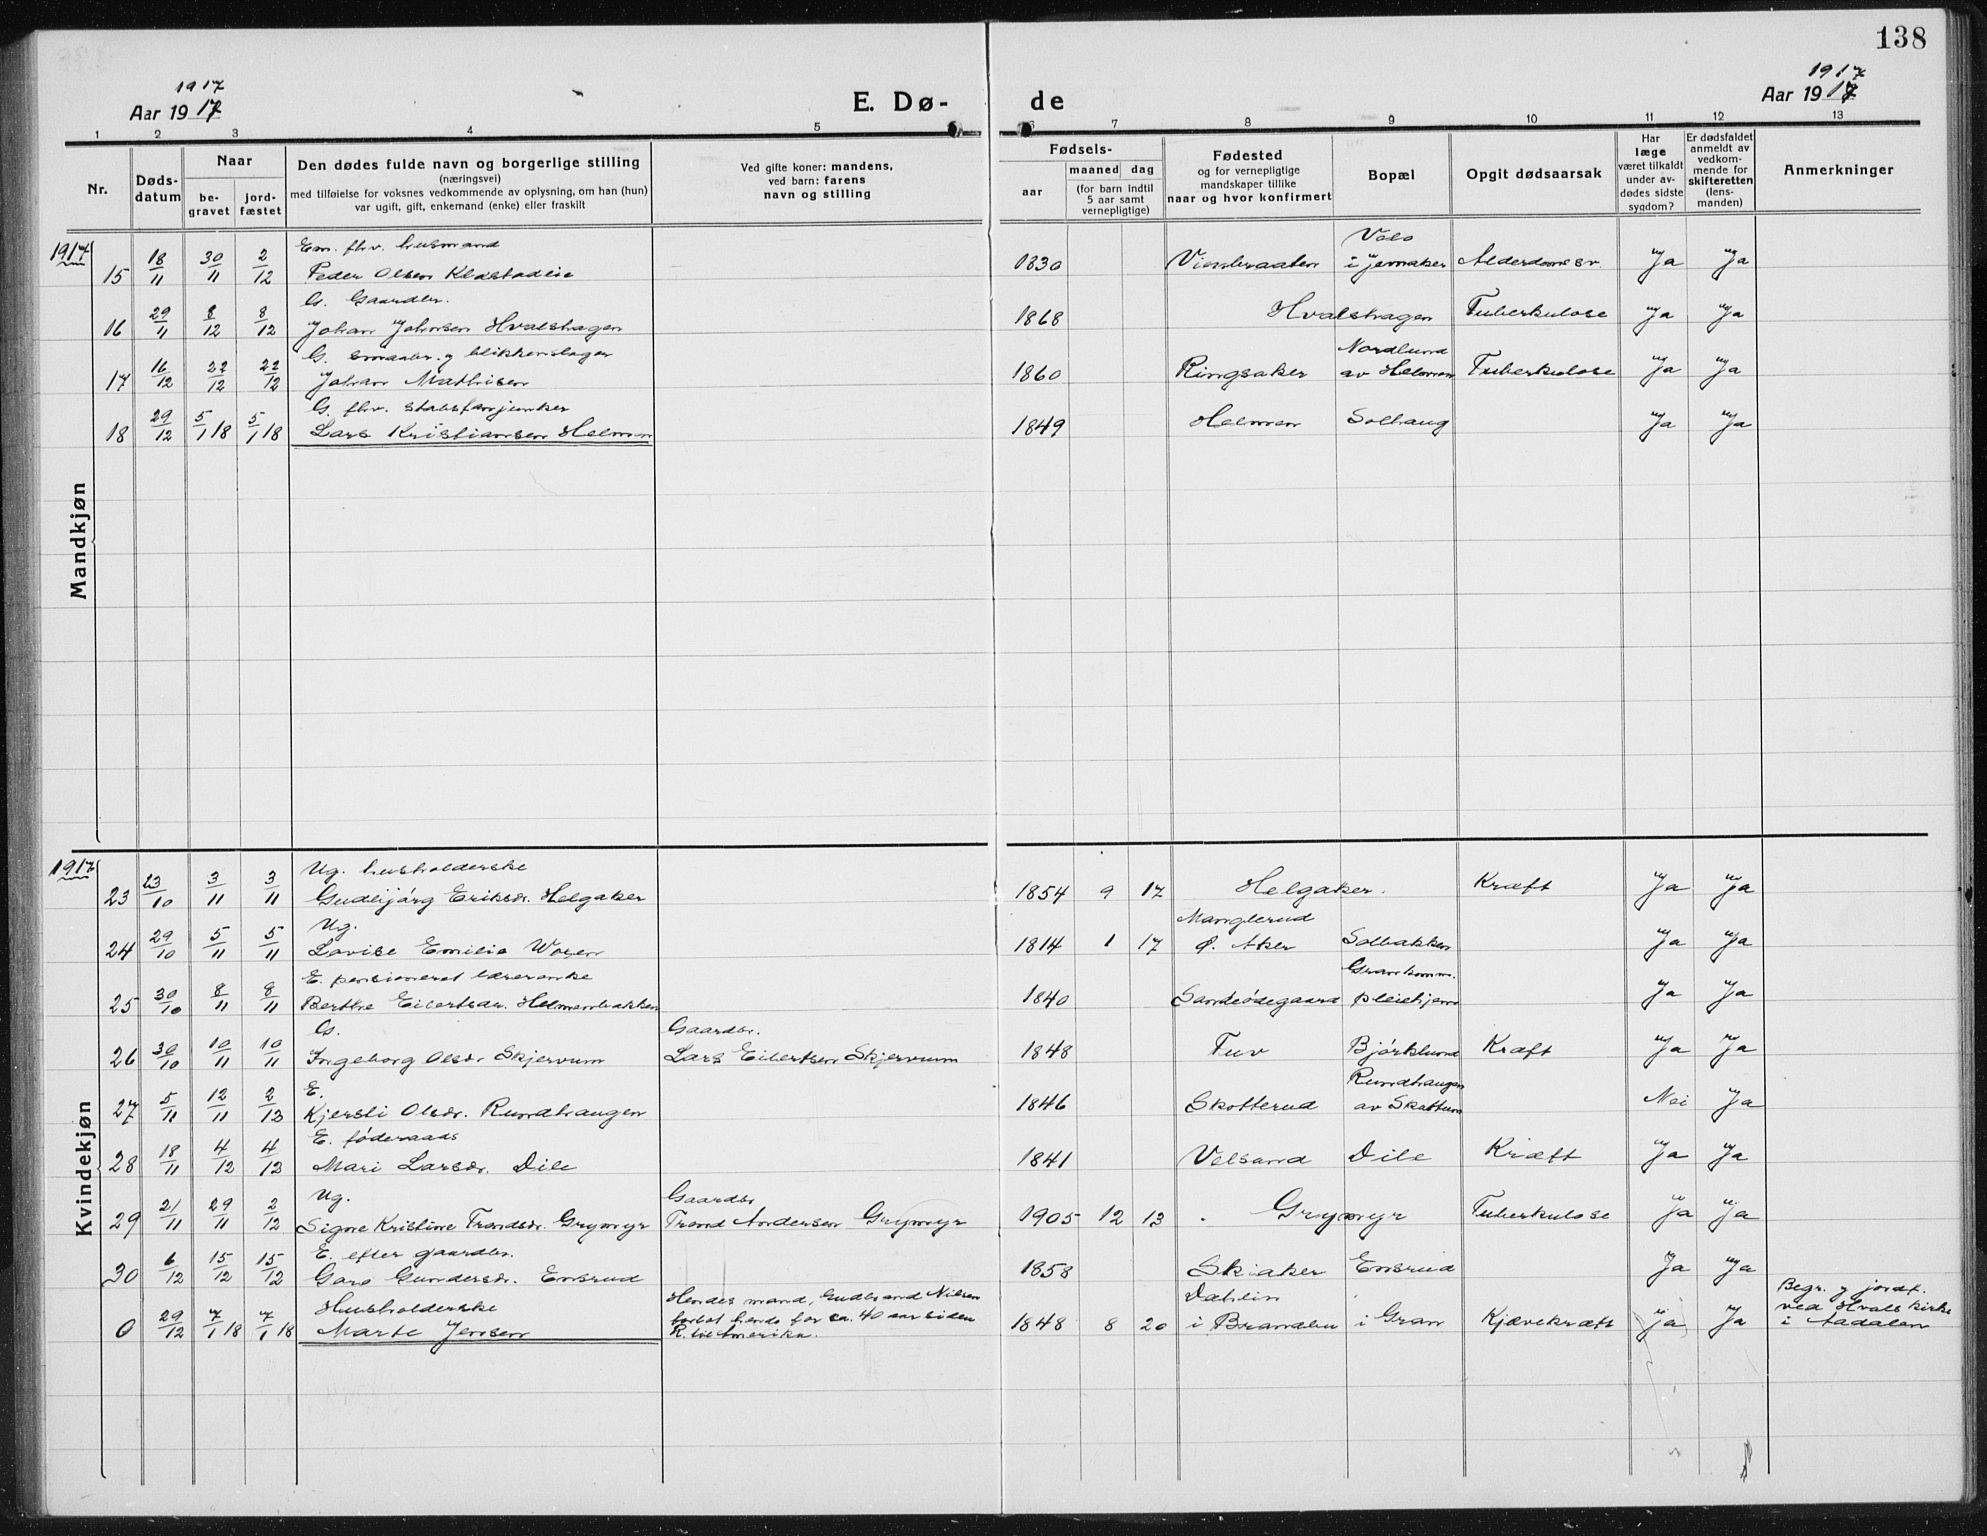 138
1917
Aar 1917
E. Dø-
de
1917
Aar 1917
1 2 3 4 5 6 7 8 9 10 11 12 13
Nr.
Døds-
datum
Naar
be-
gravet
jord-
fæstet
Den dødes fulde navn og borgerlige stilling
(næringsvei)
med tilføielse for voksnes vedkommende av oplysning, om han (hun)
var ugift, gift, enkemand (enke) eller fraskilt
Ved gifte koner: mandens,
ved barn: farens
navn og stilling
Fødsels-
aar
maaned dag
(for barn indtil
5 aar samt
vernepligtige)
Fødested
og for vernepligtige
mandskaper tillike
naar og hvor konfirmert
Bopæl
Opgit dødsaarsak
Har
læge
været tilkaldt
under av-
dødes sidste
sygdom?
Er dødsfaldet
anmeldt av
vedkom-
mende for
skifteretten
(lens-
manden)
Anmerkninger
Mandkjøn
1917
Em. fhv. husmand Velo
15 18/11 30/11 2/12 Peder Olsen Klæstadeie 1830 i Jevnaker Alderdomssv. Ja Ja
G. Gaardbr.
16 29/11 8/12 8/12 Johan Johnsen Hvalshagen 1868 Hvalshagen Tuberkulose Ja Ja
G. smaabr. og blikkenslager Nordlund
17 16/12 22/12 22/12 Johan Mathisen 1860 Ringsaker av Helmen Tuberkulose Ja Ja
G. fhv. stabsfanejunker
18 29/12 5/1 18 5/1 18 Lars Kristiansen Helmen 1849 Helmen Solhaug Ja Ja
Kvindekjøn
1917
Ug. husholderske
23 23/10 3/11 3/11 Gudbjørg Eriksdr. Helgaker 1854 9 17 Helgaker. Kræft Ja Ja
Ug. Manglerud
24 29/10 5/11 5/11 Lovise Emilie Woxen 1814 1 17 Ø. Aker Solbakken Ja Ja
E. pensioneret lærerenke Gran komm.
25 30/10 8/11 8/11 Berthe Eilertsdr. Helmenbakken 1840 Sandsødegaard pleiehjem Ja Ja
G. Gaardbr.
26 30/10 10/11 10/11 Ingeborg Olsdr. Skjervum Lars Eilertsen Skjervum 1848 Tuv Bjørklund Kræft Ja Ja
E. Rundhaugen
27 5/11 12/11 2/12 Kjersti Olsdr. Rundhaugen 1846 Skotterud av Skattum Nei Ja
E. føderaads
28 18/11 4/12 4/12 Mari Larsdr. Dile 1841 Velsand Dile Kræft Ja Ja
Ug. Gaardbr.
29 21/11 29/11 2/12 Signe Kristine Trondsdr. Grymyr Trond Andersen Grymyr 1905 12 13 Grymyr Tuberkulose Ja Ja
E. efter gaardbr.
30 6/12 15/12 15/12 Garo Gundersdr. Ensrud 1858 Skiaker Ensrud Ja Ja
Husholderske Hendes mand, Gudbrand Nilsen Dæhlin Begr. og jordf.
forlot hende for ca. 40 aar siden ved Hvals kirke
0 29/12 7/1 18 7/1 18 Marte Jensen R. til Amerika. 1848 8 20 i Brandbu i Gran Kjævekræft Ja Ja i Aadalen